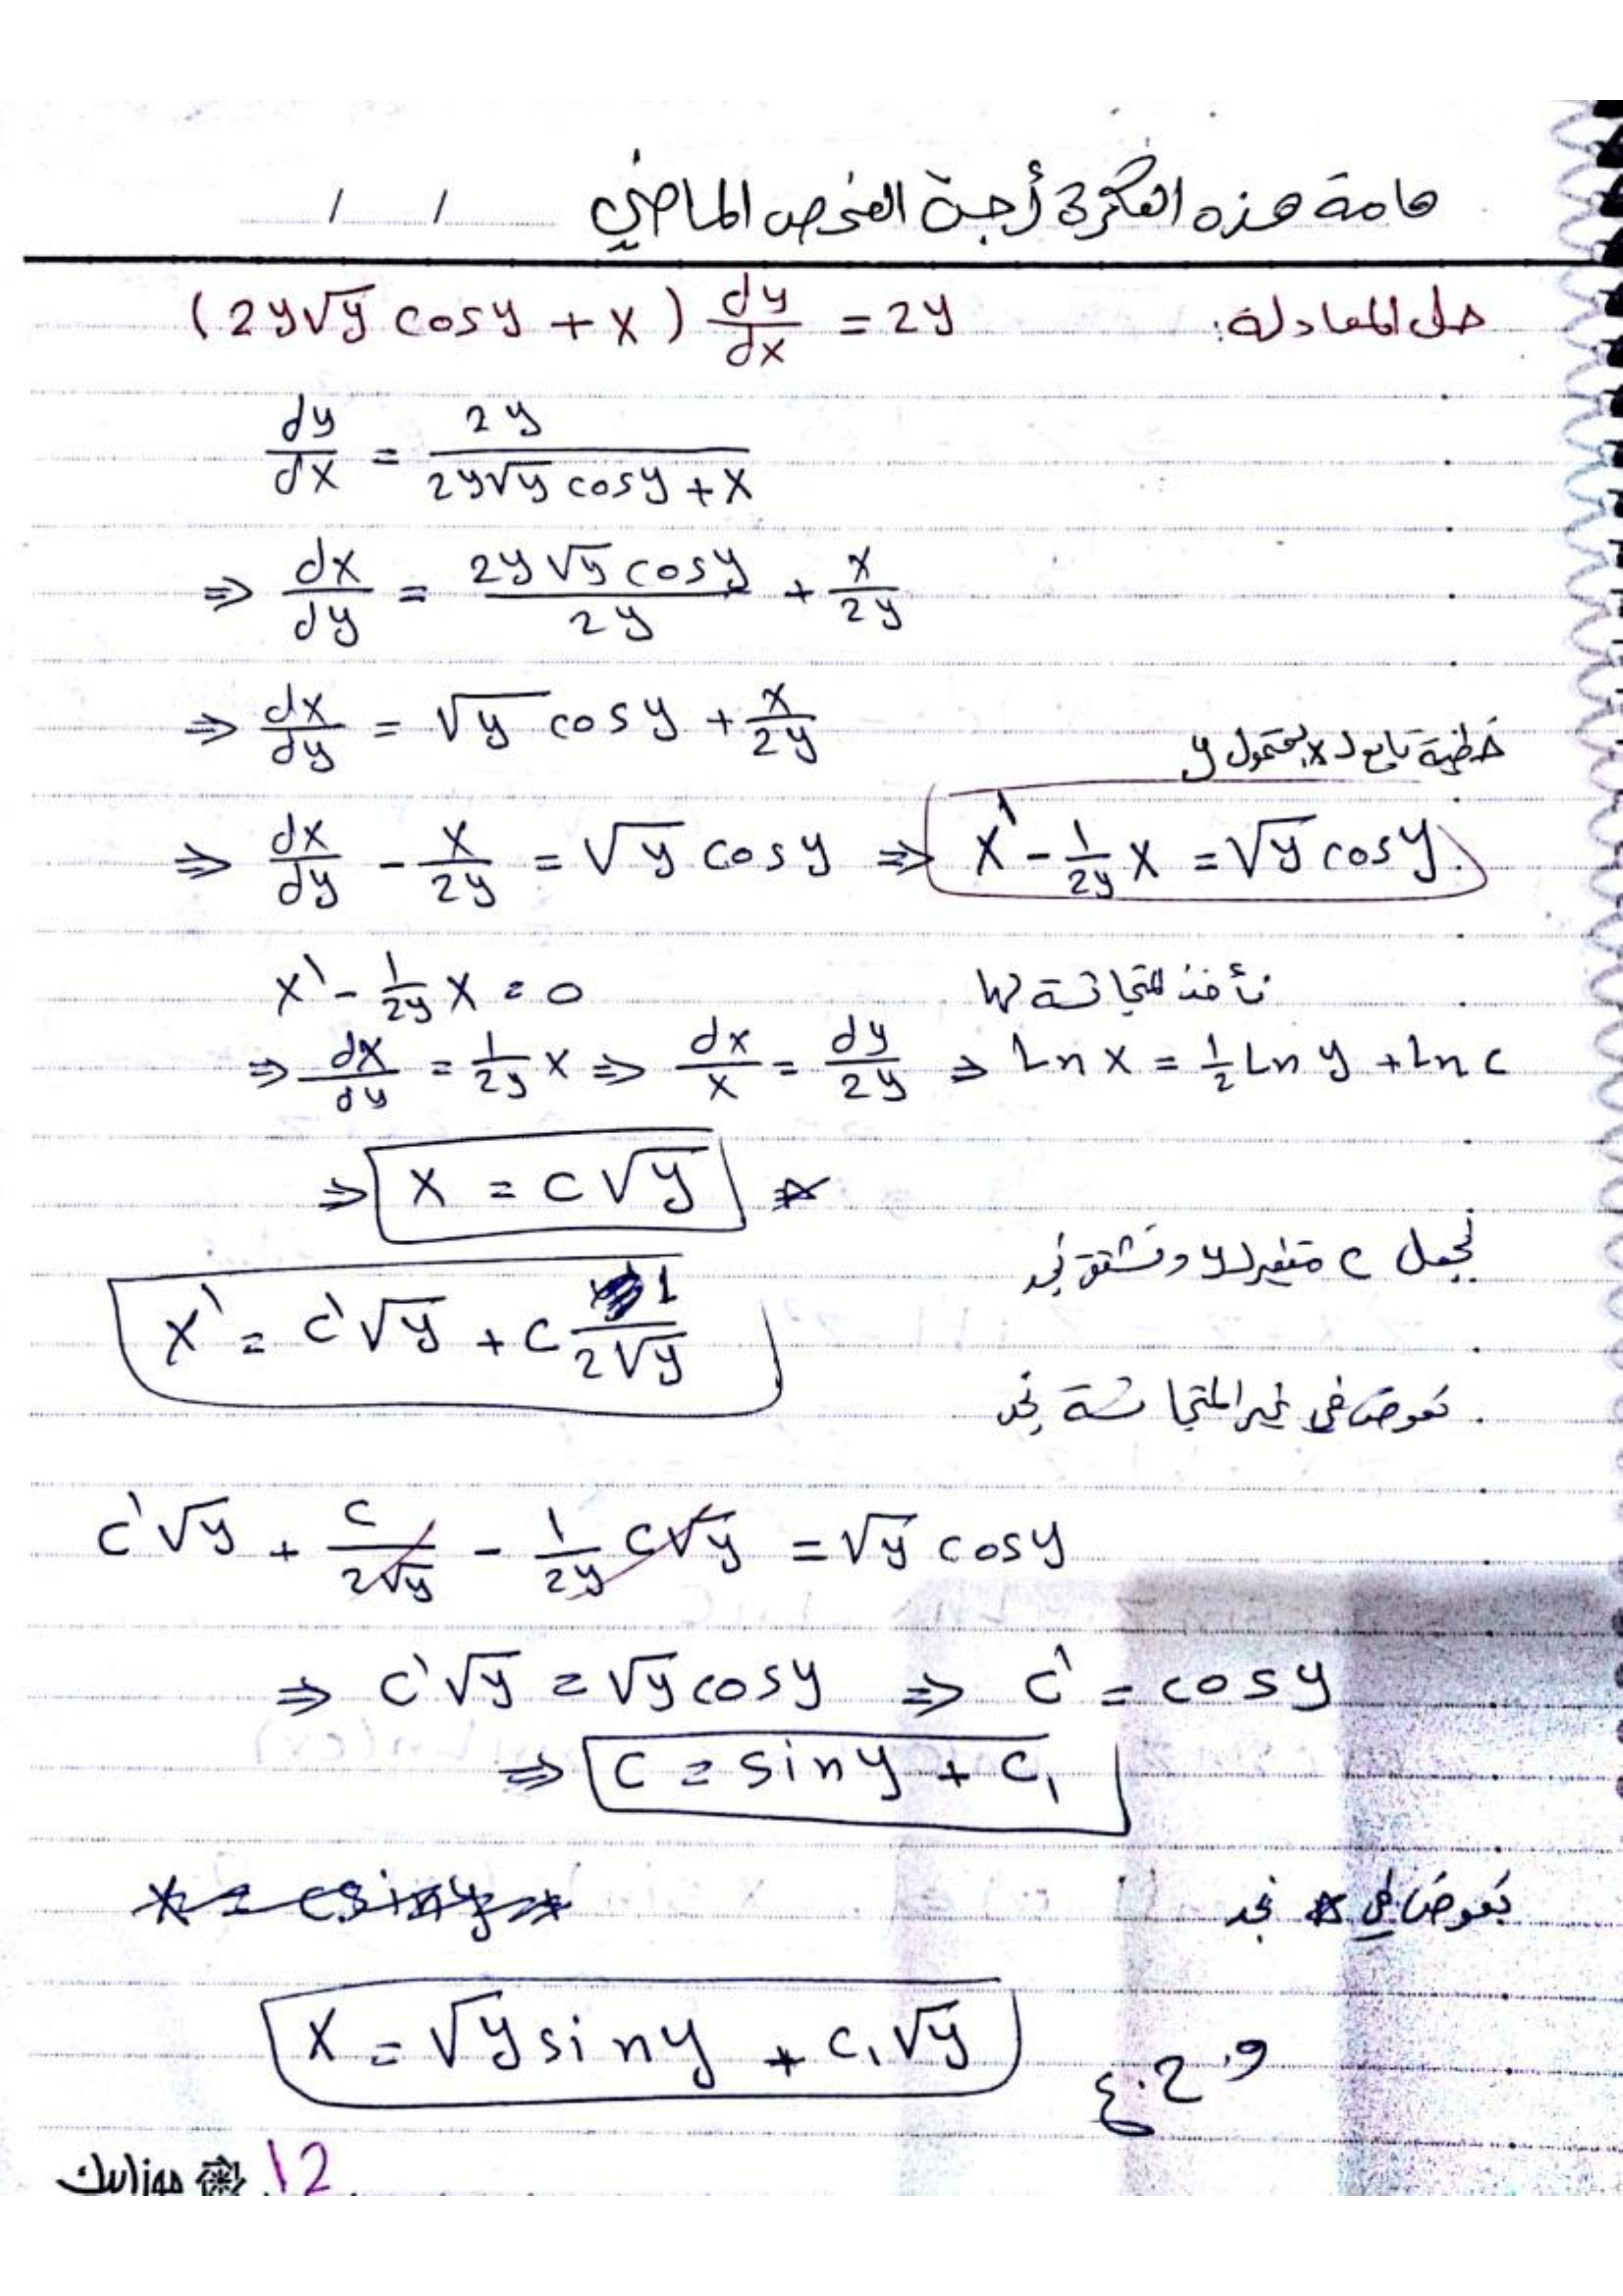 هامة هذه الفكرة أجت الفحص الماضي / /
حل المعادلة: (2y√y cosy + x) dy/dx = 2y
dy/dx = 2y / (2y√y cosy + x)
⇒ dx/dy = 2y√y cosy / 2y + x/2y
⇒ dx/dy = √y cosy + x/2y
خطية تابع لـ x بمتحول y
⇒ dx/dy - x/2y = √y cosy ⇒ x' - 1/2y x = √y cosy
نأخذ المتجانسة لها x' - 1/2y x = 0
⇒ dx/dy = 1/2y x ⇒ dx/x = dy/2y ⇒ Ln x = 1/2 Ln y + Ln c
⇒ x = c√y *
نجعل c متغير لـ y ونشتق نجد
x' = c'√y + c 1/2√y
نعوض في غير المتجانسة نجد
c'√y + c/2√y - 1/2y c√y = √y cosy
⇒ c'√y = √y cosy ⇒ c' = cosy
⇒ c = siny + c₁
نعوض في * نجد
x = √y siny + c₁√y
و.ح.ع
موزاييك 12